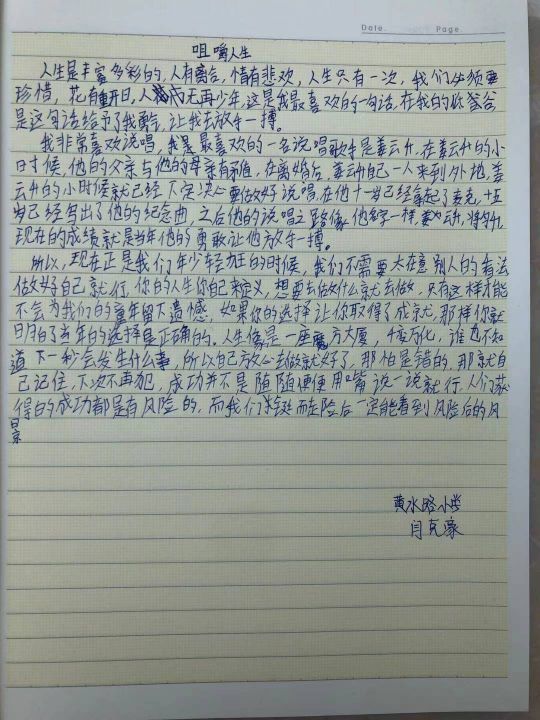 Date. Page.
咀嚼人生
人生是丰富多彩的，人有离合，情有悲欢，人生只有一次，我们必须要
珍惜，花有重开日，人无再少年，这是我最喜欢的一句话，在我的
是这句话给予了我勇气，让我去放手一搏。
我非常喜欢说唱，我最喜欢的一名说唱歌手是姜云升，在姜云升的小
时候，他的父亲与他的母亲有矛盾，在离婚后，姜云升自己一人来到外地，姜
云升的小时候就已经下定决心要做好说唱，在他十一岁已经拿起了麦克，十五
岁已经写出了他的纪念曲，之后他的说唱之路像他名字一样，
现在的成绩就是当年他的勇敢让他放手一搏。
所以，现在正是我们年少轻狂的时候，我们不需要太在意别人的看法
做好自己就行，你的人生你自己来定义，想要去做什么就去做，只有这样才能
不会为我们的童年留下遗憾，如果你的选择让你取得了成就，那样你就
明白了当年的选择是正确的。人生像是一座魔方大厦，千变万化，谁也不知
道下一秒会发生什么事，所以自己放心去做就好了，那怕是错的，那就自
己记住，下次不再犯，成功并不是随随便便用嘴说一说就行，人们获
得的成功都是有风险的，而我们铤而走险后一定能看到风险后的风
景
黄水路小学
闫克豪